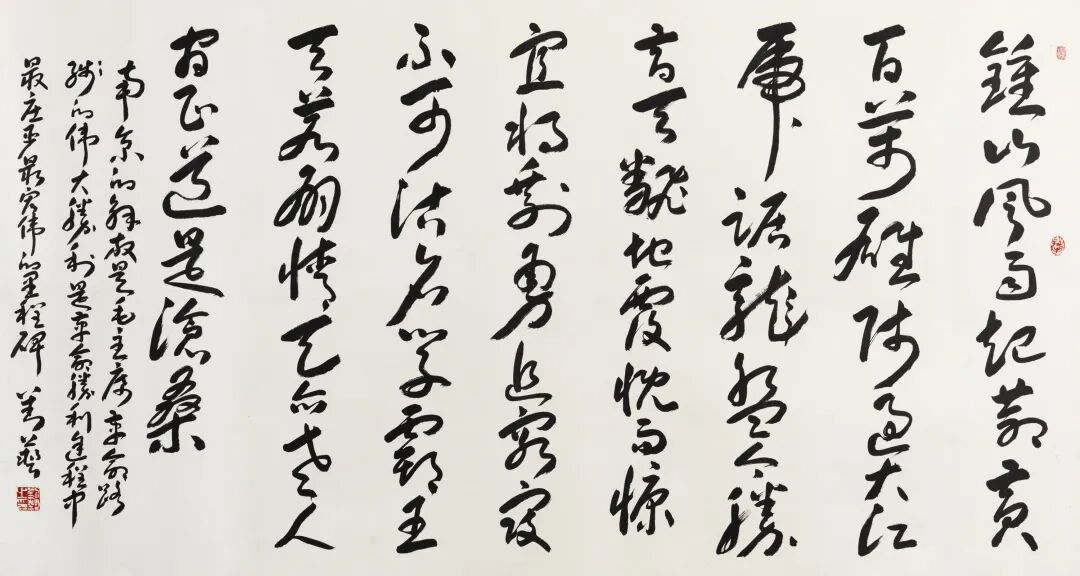 鍾山風雨起蒼黄
百萬雄师過大江
虎踞龍盤今勝
昔天飜地覆慨而慷
宜将剩勇追窮寇
不可沽名学霸王
天若有情天亦老人
间正道是滄桑
南京的解放是毛主席革命路
线的伟大勝利是革命勝利进程中
最庄严最宏伟的里程碑